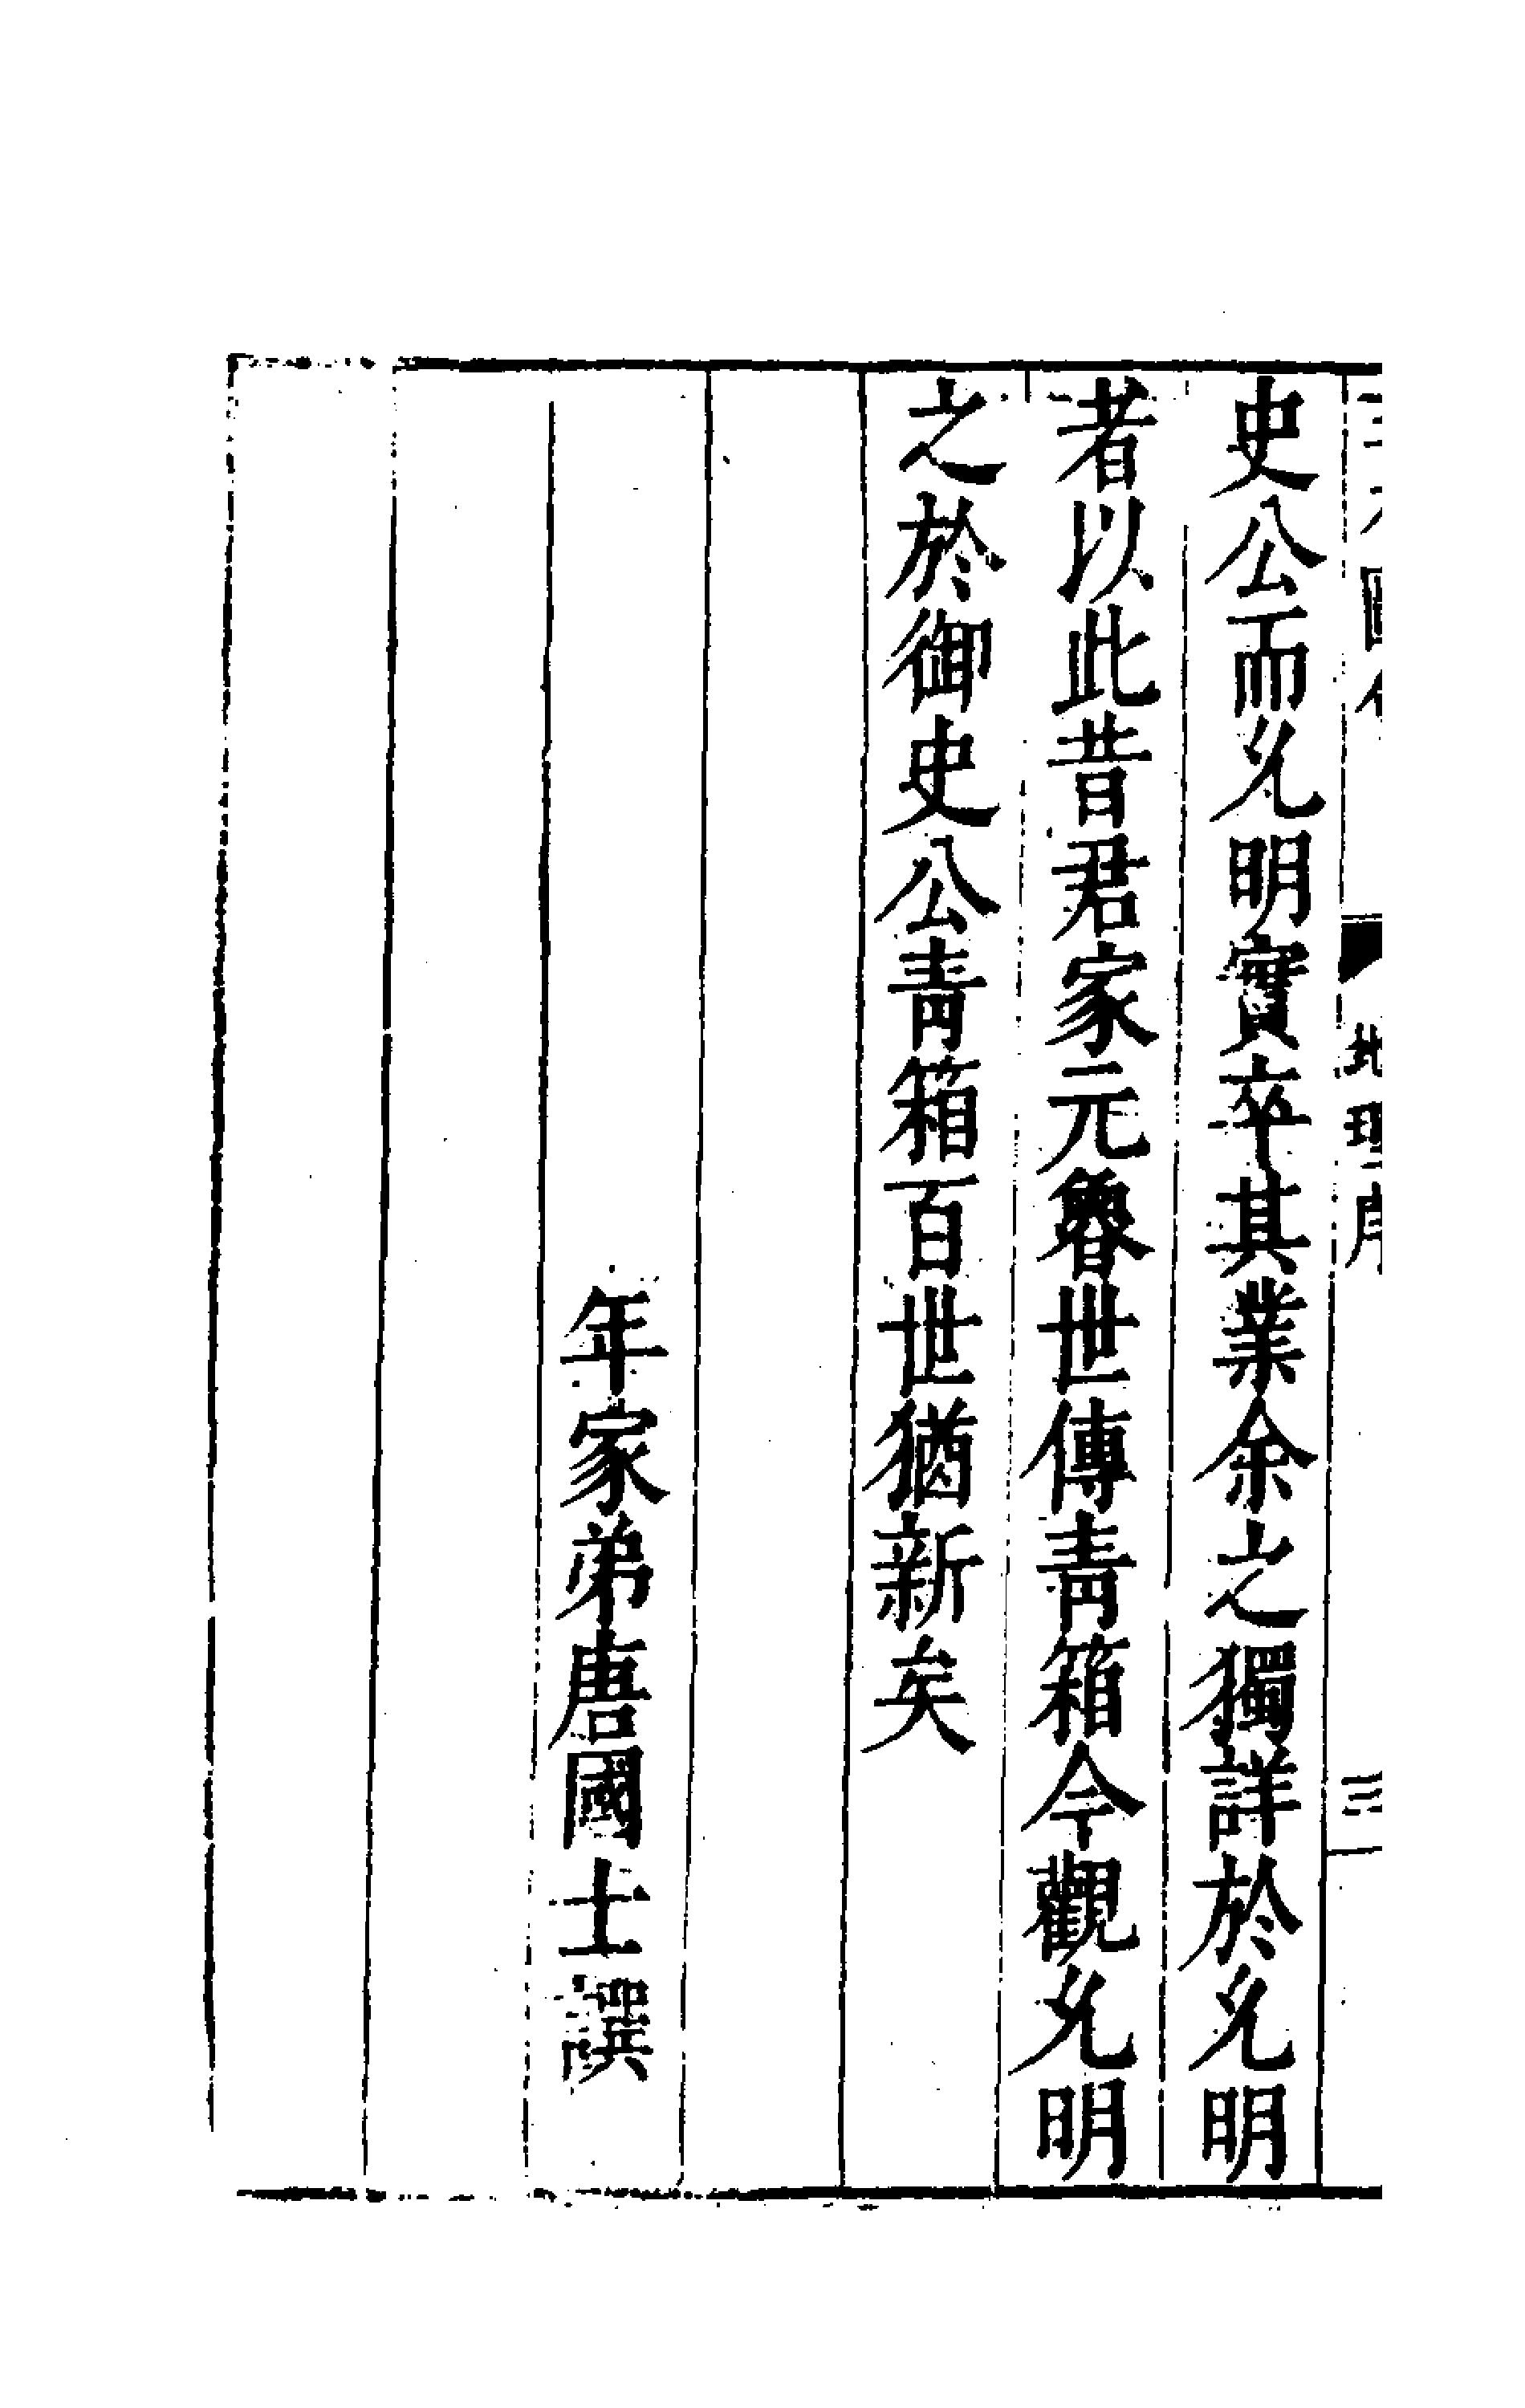 地理序 三
史公而允明實卒其業余之獨詳於允明
者以此昔君家元魯世傳青箱今觀允明
之於御史公青箱百世猶新矣
年家弟唐國士譔